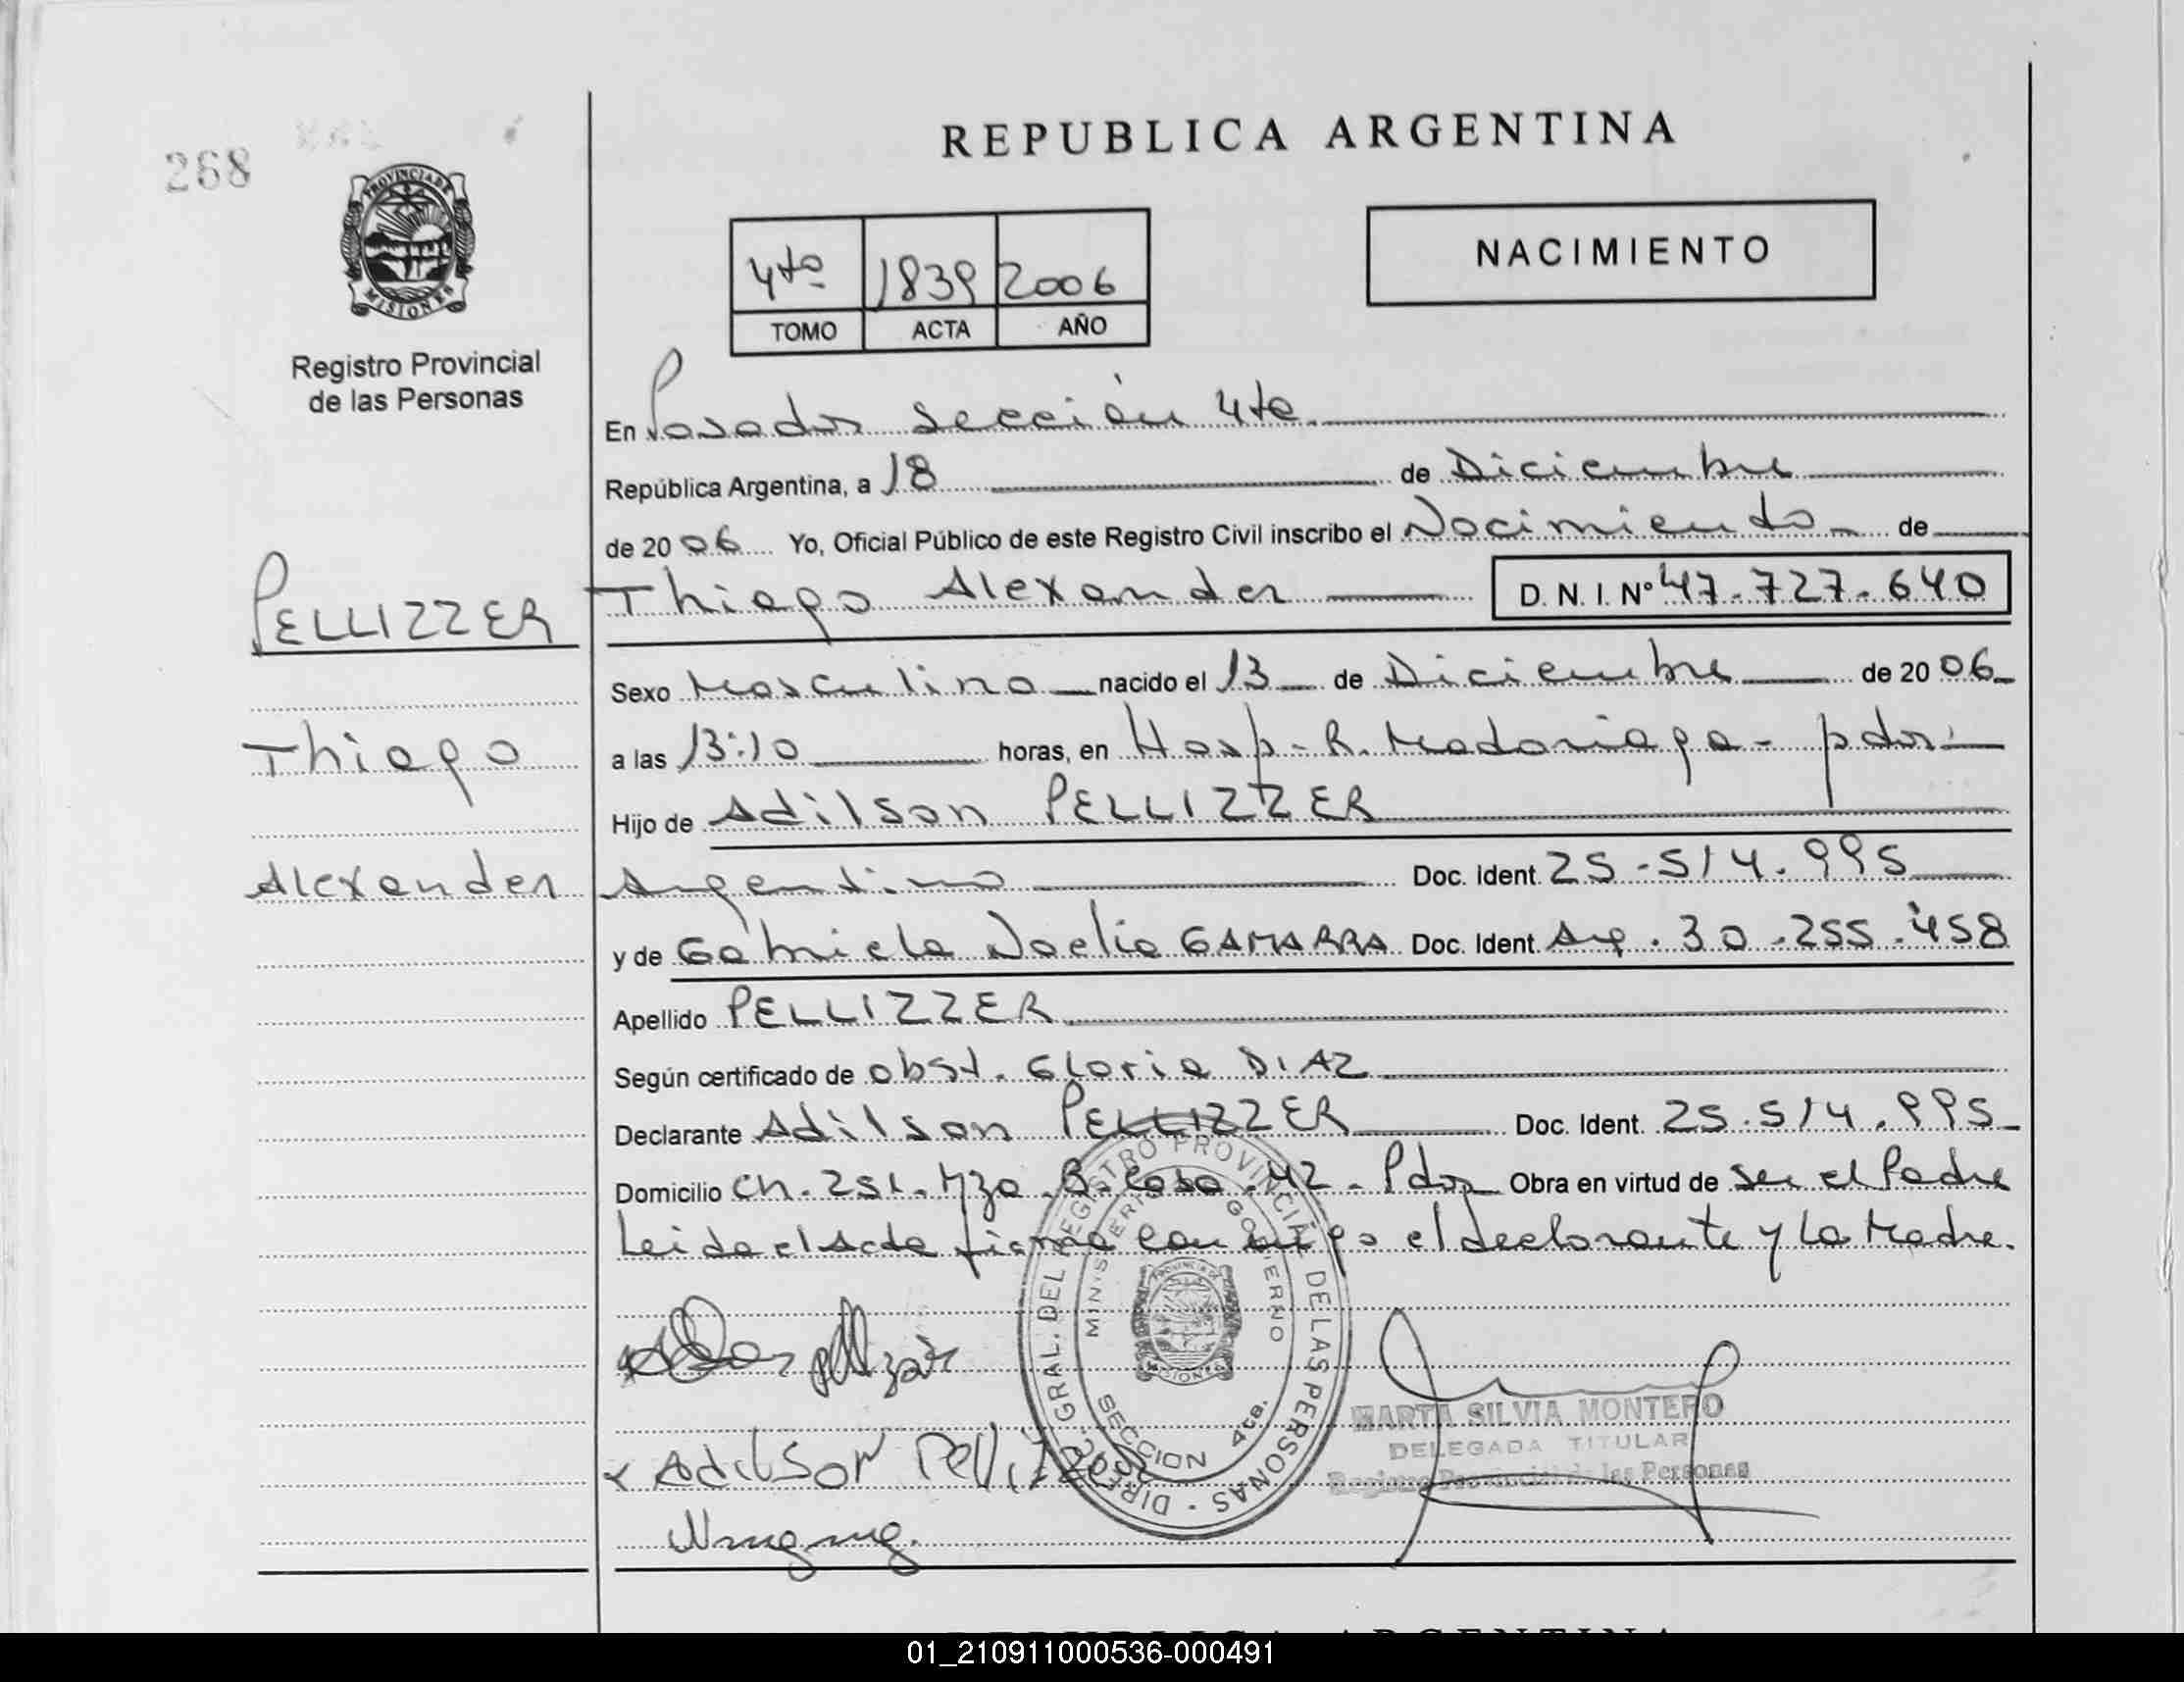 REPUBLICA ARGENTINA
268
PROVINCIA DE
MISIONES
Registro Provincial
de las Personas
4to 1839 2006
TOMO ACTA AÑO
NACIMIENTO
En Posadas sección 4ta.
República Argentina, a 18 de Diciembre
de 2006 Yo, Oficial Público de este Registro Civil inscribo el Nacimiento de
PELLIZZER
Thiago
Alexander
Thiago Alexander D.N.I. Nº 47.727.640
Sexo Masculino nacido el 13 de Diciembre de 2006
a las 13:10 horas, en Hosp. R. Madariaga - pdas.
Hijo de Adilson PELLIZZER
Argentino Doc. Ident. 25.514.995
y de Gabriela Noelia GAMARRA Doc. Ident. Arg. 30.255.458
Apellido PELLIZZER
Según certificado de obst. Gloria DIAZ
Declarante Adilson PELLIZZER Doc. Ident. 25.514.995
Domicilio CH. 251. Mza. B. Casa. 42. Pdas Obra en virtud de ser el Padre
Leida el Acta firma conmigo el declarante y la Madre.
DIREC. GRAL. DEL REGISTRO PROVINCIAL DE LAS PERSONAS
MINISTERIO GOBIERNO
SECCION 4ta.
PROVINCIA DE
MISIONES
ADILSON Pellizzer
MARTA SILVIA MONTERO
DELEGADA TITULAR
Registro Provincial de las Personas
REPUBLICA ARGENTINA
01_210911000536-000491